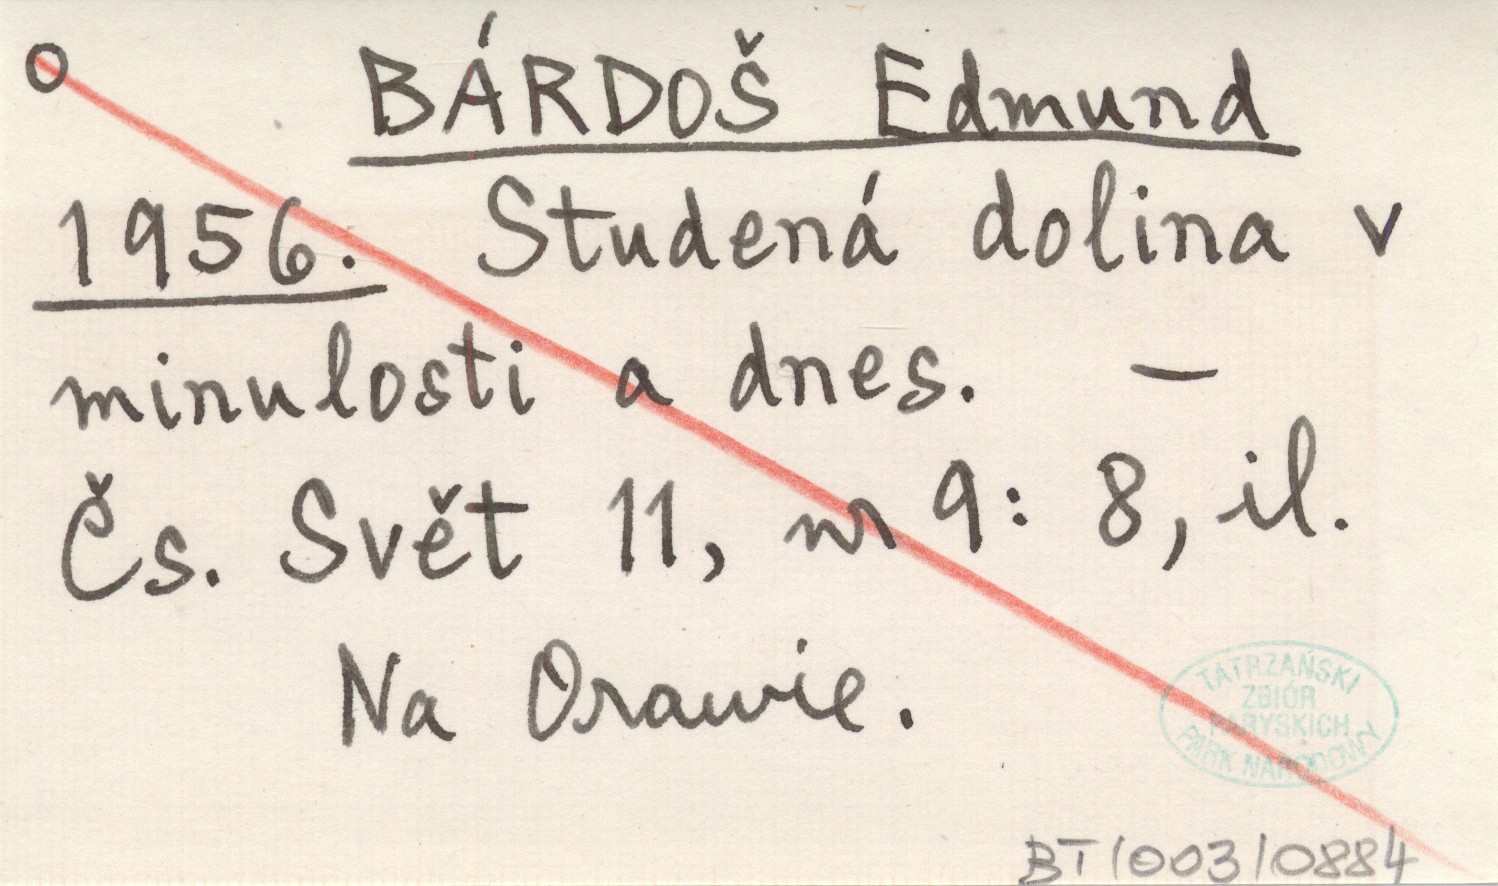 o BÁRDOŠ Edmund
1956. Studená dolina v
minulosti a dnes. –
Čs. Svět 11, nr 9: 8, il.
Na Orawie.
TATRZAŃSKI
ZBIÓR
PARYSKICH
PARK NARODOWY
BT/003/0884